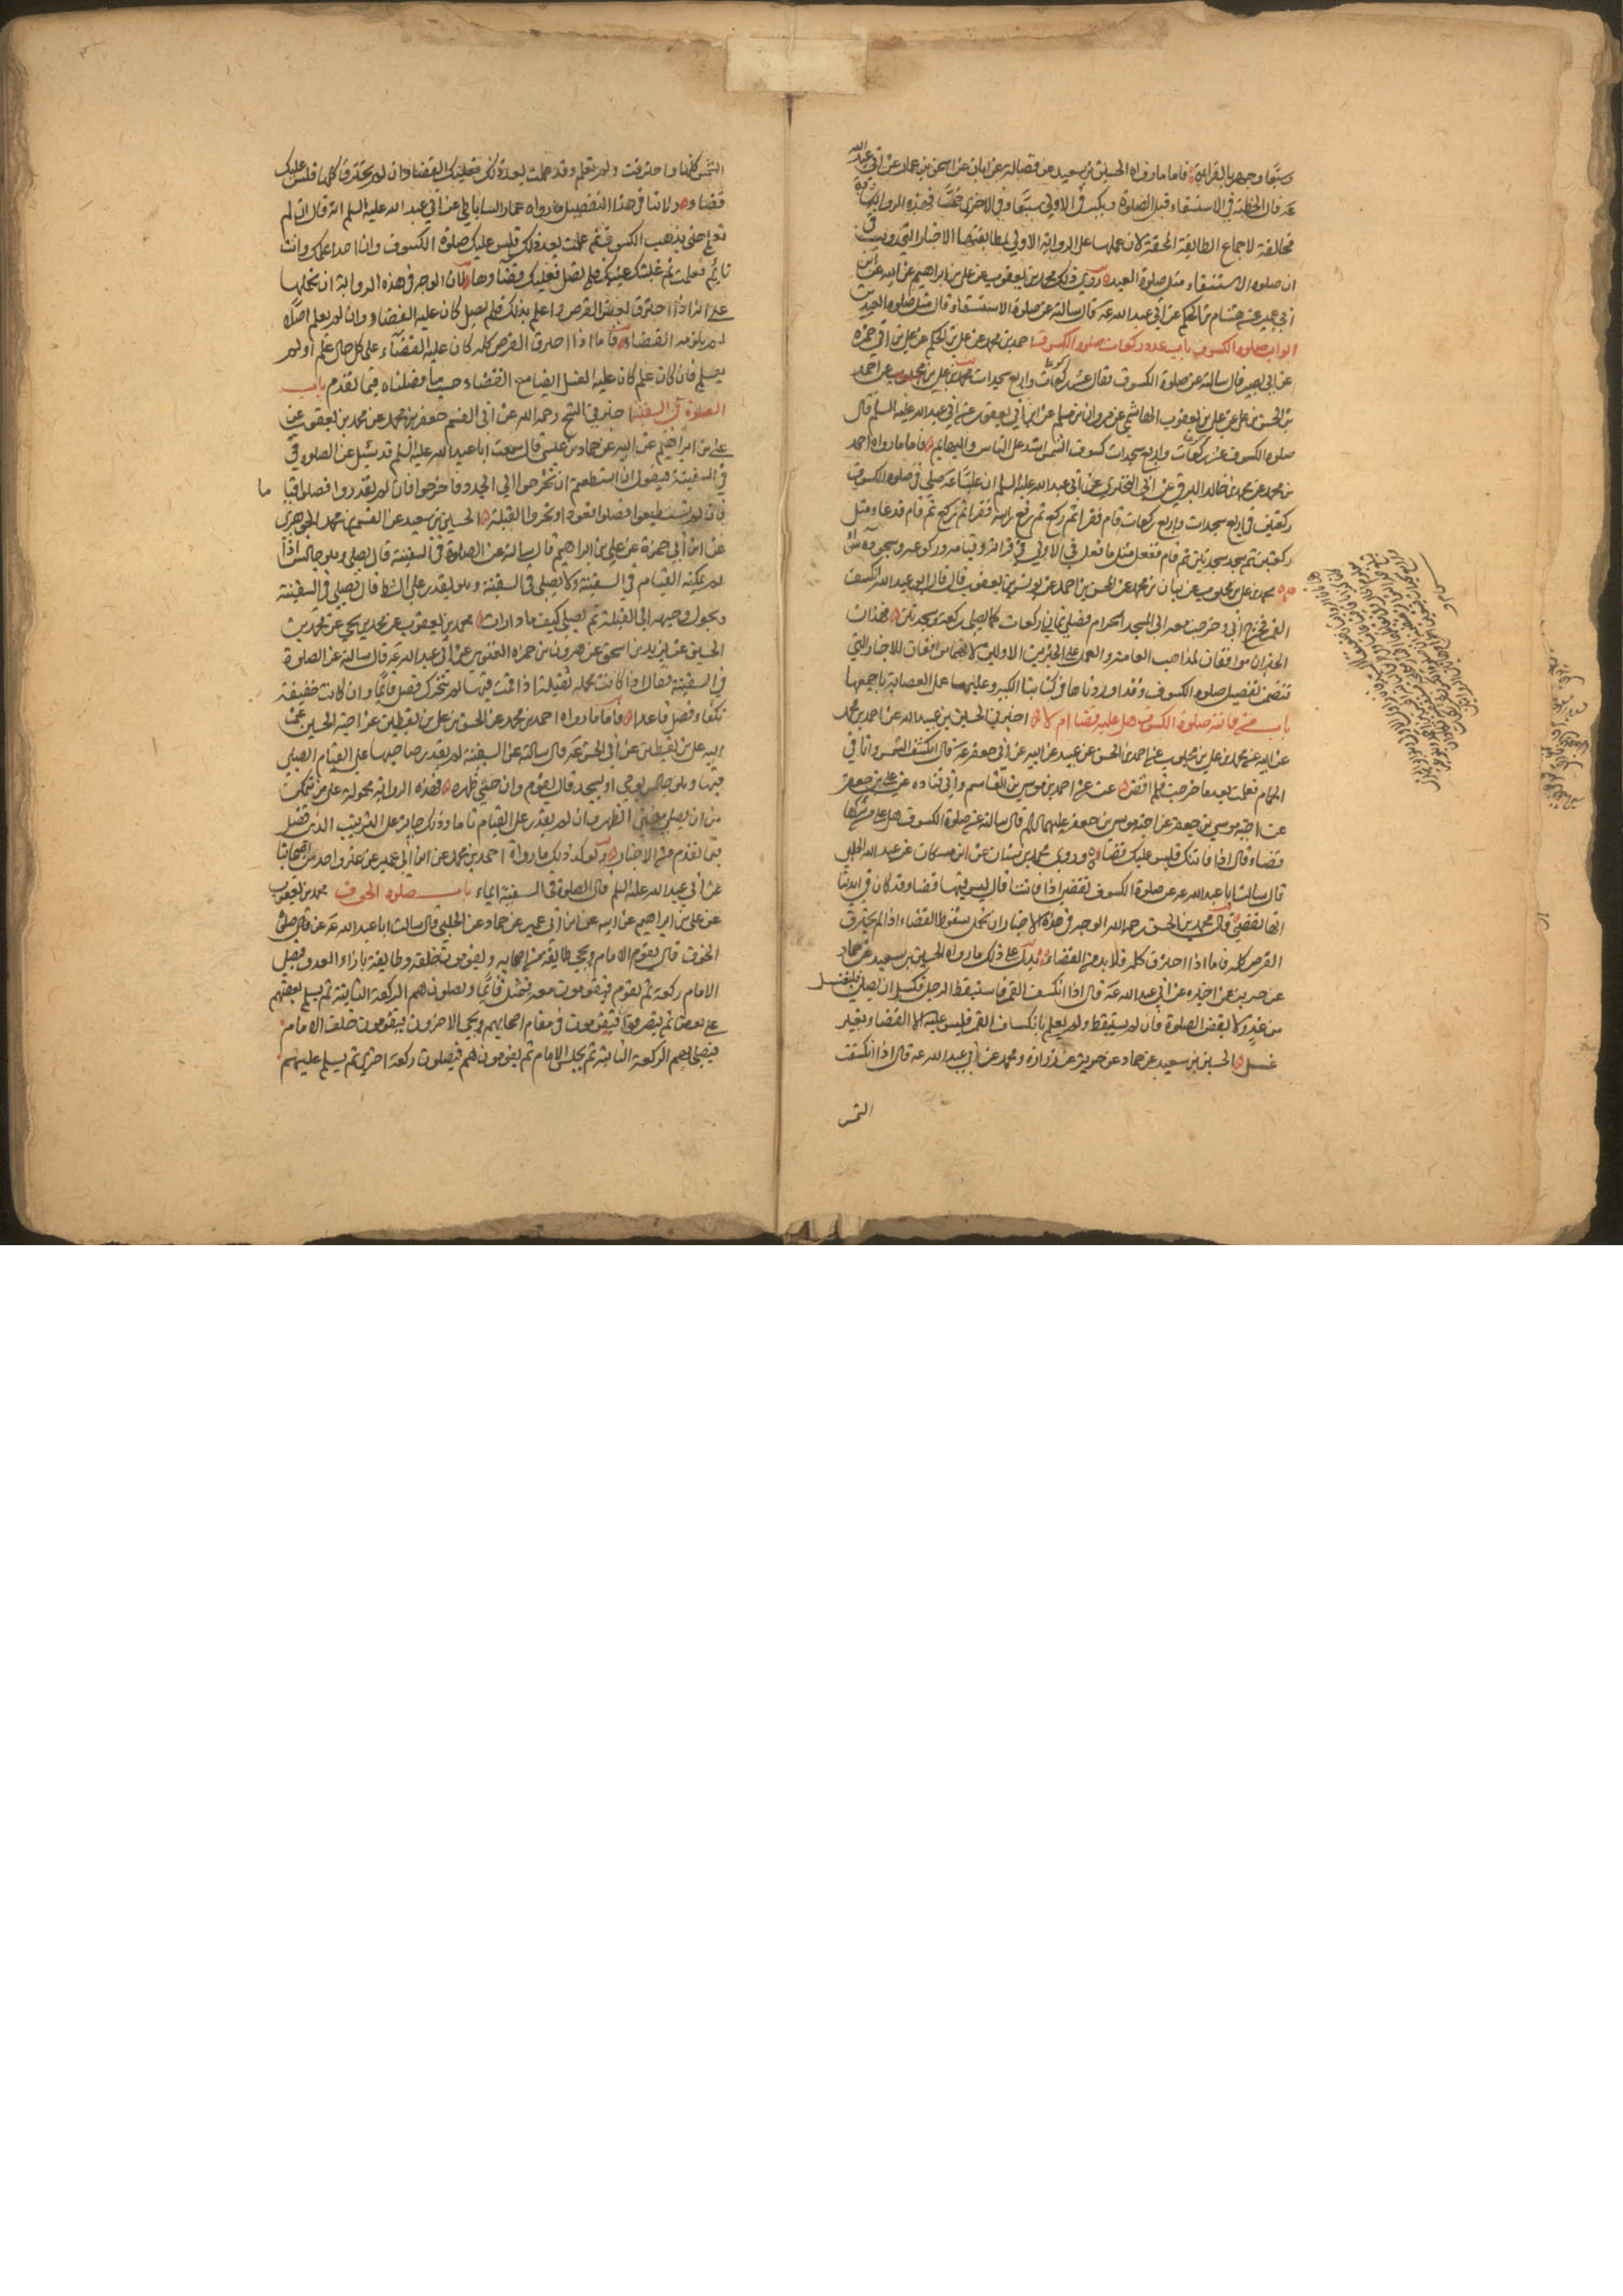 وسبعا وجهر بالقراءة فاما ما رواه الحسين بن سعيد عن فضالة عن ابان عن اسحق بن عمار عن ابي عبد الله
عه قال الخطبة في الاستسقاء قبل الصلوة ويكبر في الاولى سبعا وفي الاخرى خمسا فهذه الرواية
مخالفة لاجماع الطايفة المحقة لان عملها على الرواية الاولى لمطابقتها الاخبار التي رويت في
ان صلوة الاستسقاء مثل صلوة العيد روى ذلك محمد بن يعقوب عن علي بن ابراهيم عن ابيه عن ابن
ابي عمير عن هشام بن الحكم عن ابي عبد الله عه قال سالته عن صلوة الاستسقاء قال مثل صلوة العيدين
ابواب صلوة الكسوف باب عدد ركعات صلوة الكسوف احمد بن محمد عن علي بن الحكم عن علي بن ابي حمزة
عن ابي بصير قال سالته عن صلوة الكسوف فقال عشر ركعات واربع سجدات محمد بن علي بن محبوب عن احمد
بن الحسن عن علي بن يعقوب الهاشمي عن مروان بن مسلم عن ابن ابي يعفور عن ابي عبد الله عليه السلم قال
صلوة الكسوف عشر ركعات واربع سجدات كسوف الشمس اشد على الناس والبهايم فاما ما رواه احمد
بن محمد عن محمد بن خالد البرقي عن ابي البختري عن ابي عبد الله عليه السلم ان عليا عه صلى في صلوة الكسوف
ركعتين في اربع سجدات واربع ركعات قام فقرا ثم ركع ثم رفع راسه فقرا ثم ركع ثم قام فدعا مثل
ركعتين ثم سجد سجدتين ثم قام ففعل مثل ما فعل في الاولى في قراءته وقيامه وركوعه وسجوده سواء
محمد بن علي بن محبوب عن بنان بن محمد عن المحسن بن احمد عن يونس بن يعقوب قال قال ابو عبد الله انكسف
القمر فخرج ابي وخرجت معه الى المسجد الحرام فصلى ثماني ركعات كما يصلي ركعة وسجدتين فهذان
الخبران موافقان لمذاهب العامة والعمل على الخبرين الاولين لانهما موافقان للاخبار التي
تتضمن تفصيل صلوة الكسوف وقد اوردناها في كتابنا الكبير وعليهما عمل العصابة باجمعها
باب من فاتته صلوة الكسوف هل عليه قضاء ام لا اخبرني الحسين بن عبيد الله عن احمد بن محمد
عن ابيه عن محمد بن علي بن محبوب عن احمد بن الحسن عن عبيد عن ابيه عن ابي جعفر عه قال انكسفت الشمس وانا في
الحمام فعلمت بعد ما خرجت فلم اقض عنه عن احمد بن موسى بن القاسم وابي قتادة عن علي بن جعفر
عن اخيه موسى بن جعفر عليهما السلم قال سالته عن صلوة الكسوف هل على من تركها
قضاء قال اذا فاتتك فليس عليك قضاء وروى محمد بن سنان عن ابن مسكان عن عبيد الله الحلبي
قال سالت ابا عبد الله عه عن صلوة الكسوف تقضى اذا فاتتنا قال ليس فيها قضاء وقد كان في ايدينا
انها تقضى قال محمد بن الحسن رحمه الله الوجه في هذه الاخبار ان نحمل سقوط القضاء اذا لم يحترق
القرص كله فاما اذا احترق كله فلا بد من القضاء يدل على ذلك ما رواه الحسين بن سعيد عن حماد
عن حريز عن اخبره عن ابي عبد الله عه قال اذا انكسف القمر فاستيقظ الرجل فكسل ان يصلي فليغتسل
من غد ولا يقض الصلوة فان لم يستيقظ ولم يعلم بانكساف القمر فليس عليه الا القضاء بغير
غسل الحسين بن سعيد عن حماد عن حريز عن زرارة ومحمد عن ابي عبد الله عه قال اذا انكسفت
الشمس
الشمس كلها واحترقت ولم تعلم وقد علمت بعد ذلك فعليك القضاء وان لم يحترق كلها فليس عليك
قضاء ولا ينافي هذا التفصيل ما رواه عمار الساباطي عن ابي عبد الله عليه السلم انه قال ان لم
تعلم حتى يذهب الكسوف ثم علمت بعد ذلك فليس عليك صلوة الكسوف وان احد اعلمك وانت
نايم فعلمت ثم غلبتك عينك فلم تصل فعليك قضاؤها لان الوجه في هذه الرواية ان نحملها
على انه اذا احترق بعض القرص واعلم بذلك فلم يصل كان عليه القضاء وان لم يعلم اصلا
لم يلزمه القضاء فاما اذا احترق القرص كله كان عليه القضاء على كل حال علم او لم
يعلم فان كان علم كان عليه الغسل ايضا مع القضاء حسب ما فصلناه فيما تقدم باب
الصلوة في السفينة اخبرني الشيخ رحمه الله عن ابي القسم جعفر بن محمد عن محمد بن يعقوب عن
علي بن ابراهيم عن ابيه عن حماد بن عيسى قال سمعت ابا عبد الله عليه السلم قد سئل عن الصلوة في
في السفينة فيقول ان استطعتم ان تخرجوا الى الجدد فاخرجوا فان لم تقدروا فصلوا قياما
فان لم تستطيعوا فصلوا قعودا وتحروا القبلة الحسين بن سعيد عن القسم بن محمد الجوهري
عن ابن ابي حمزة عن علي بن ابراهيم قال سالته عن الصلوة في السفينة قال يصلي وهو جالس اذا
لم يمكنه القيام في السفينة ولا يصلي في السفينة وهو يقدر على الشط قال يصلي في السفينة
ويحول وجهه الى القبلة ثم يصلي كيف ما دارت محمد بن يعقوب عن محمد بن يحيى عن محمد بن
الحسين عن يزيد بن اسحق عن هرون بن حمزة الغنوي عن ابي عبد الله عه قال سالته عن الصلوة
في السفينة فقال اذا كانت محملة ثقيلة اذا قمت فيها لم تتحرك فصل قايما وان كانت خفيفة
تكفأ فصل قاعدا فاما ما رواه احمد بن محمد عن الحسن بن علي بن يقطين عن اخيه الحسين عن
ابيه علي بن يقطين عن ابي الحسن عه قال سالته عن السفينة لم يقدر صاحبها على القيام ايصلي
فيها وهو جالس يومي او يسجد قال يقوم وان حنى ظهره فهذه الرواية محمولة على من تمكن
من ان يصلي منحني الظهر فان لم يقدر على القيام تاما وذلك جايز على الترتيب الذي فصل
فيما تقدم من الاخبار ويوكد ذلك ما رواه احمد بن محمد عن ابن ابي عمير عن غير واحد من اصحابنا
عن ابي عبد الله عليه السلم قال الصلوة في السفينة ايماء باب صلوة الخوف محمد بن يعقوب
عن علي بن ابراهيم عن ابيه عن ابن ابي عمير عن حماد عن الحلبي قال سالت ابا عبد الله عه عن صلوة
الخوف قال يقوم الامام ويجيء طايفة من اصحابه فيقومون خلفه وطايفة بازاء العدو فيصلي
الامام ركعة ثم يقوم فيقومون معه فيمثل قايما ويصلون هم الركعة الثانية ثم يسلم بعضهم
على بعض ثم ينصرفون فيقومون في مقام اصحابهم ويجيء الاخرون فيقومون خلف الامام
فيصلي بهم الركعة الثانية ثم يجلس الامام ثم يقومون هم فيصلون ركعة اخرى ثم يسلم عليهم